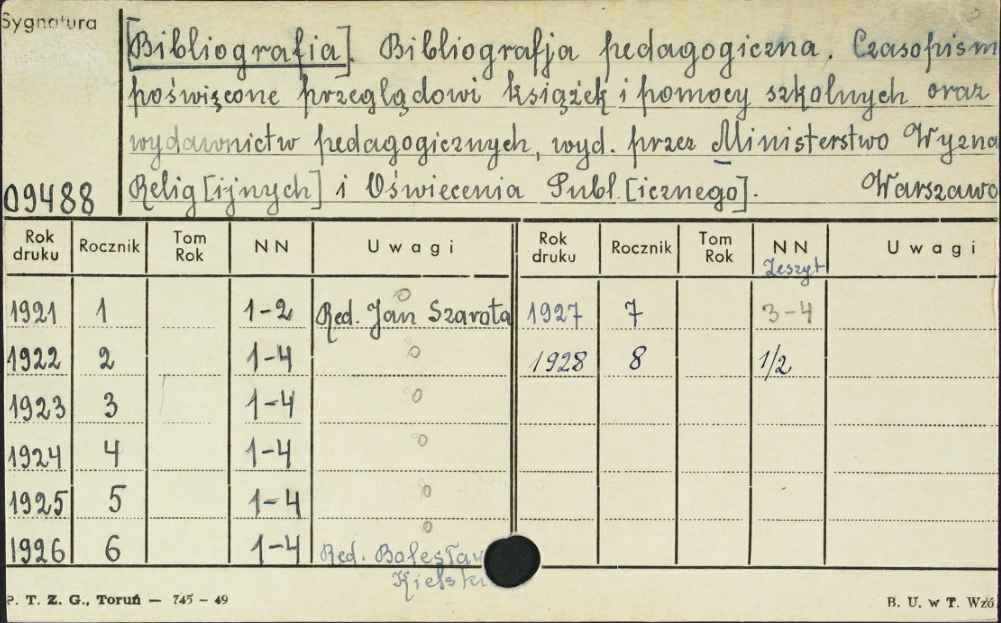 Sygnatura
[Bibliografia]. Bibliografja pedagogiczna. Czasopism
poświęcone przeglądowi książek i pomocy szkolnych oraz
wydawnictw pedagogicznych, wyd. przez Ministerstwo Wyzna
Relig[ijnych] i Oświecenia Publ.[icznego]. Warszawa
09488
Rok druku Rocznik Tom Rok NN Uwagi Rok druku Rocznik Tom Rok NN Zeszyt Uwagi
1921 1 1-2 Red. Jan Szarota 1927 7 3-4
1922 2 1-4 1928 8 1/2
1923 3 1-4
1924 4 1-4
1925 5 1-4
1926 6 1-4 Red. Bolesław
Kielski
P. T. Z. G., Toruń — 745 – 49 B. U. w T. Wzó